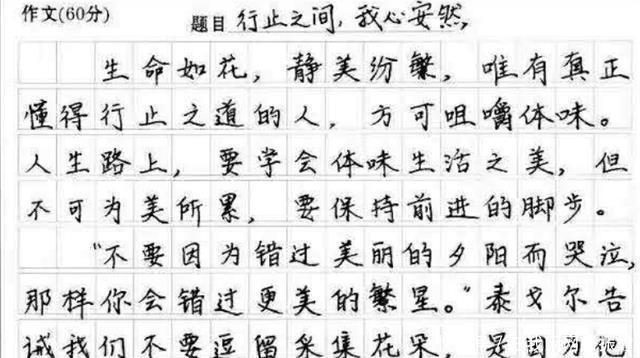 作文(60分) 题目 行止之间,我心安然,
生命如花,静美纷繁,唯有真正
懂得行止之道的人,方可咀嚼体味。
人生路上,要学会体味生活之美,但
不可为美所累,要保持前进的脚步。
“不要因为错过美丽的夕阳而哭泣,
那样你会错过更美的繁星。”泰戈尔告
诫我们不要逗留采集花朵,是